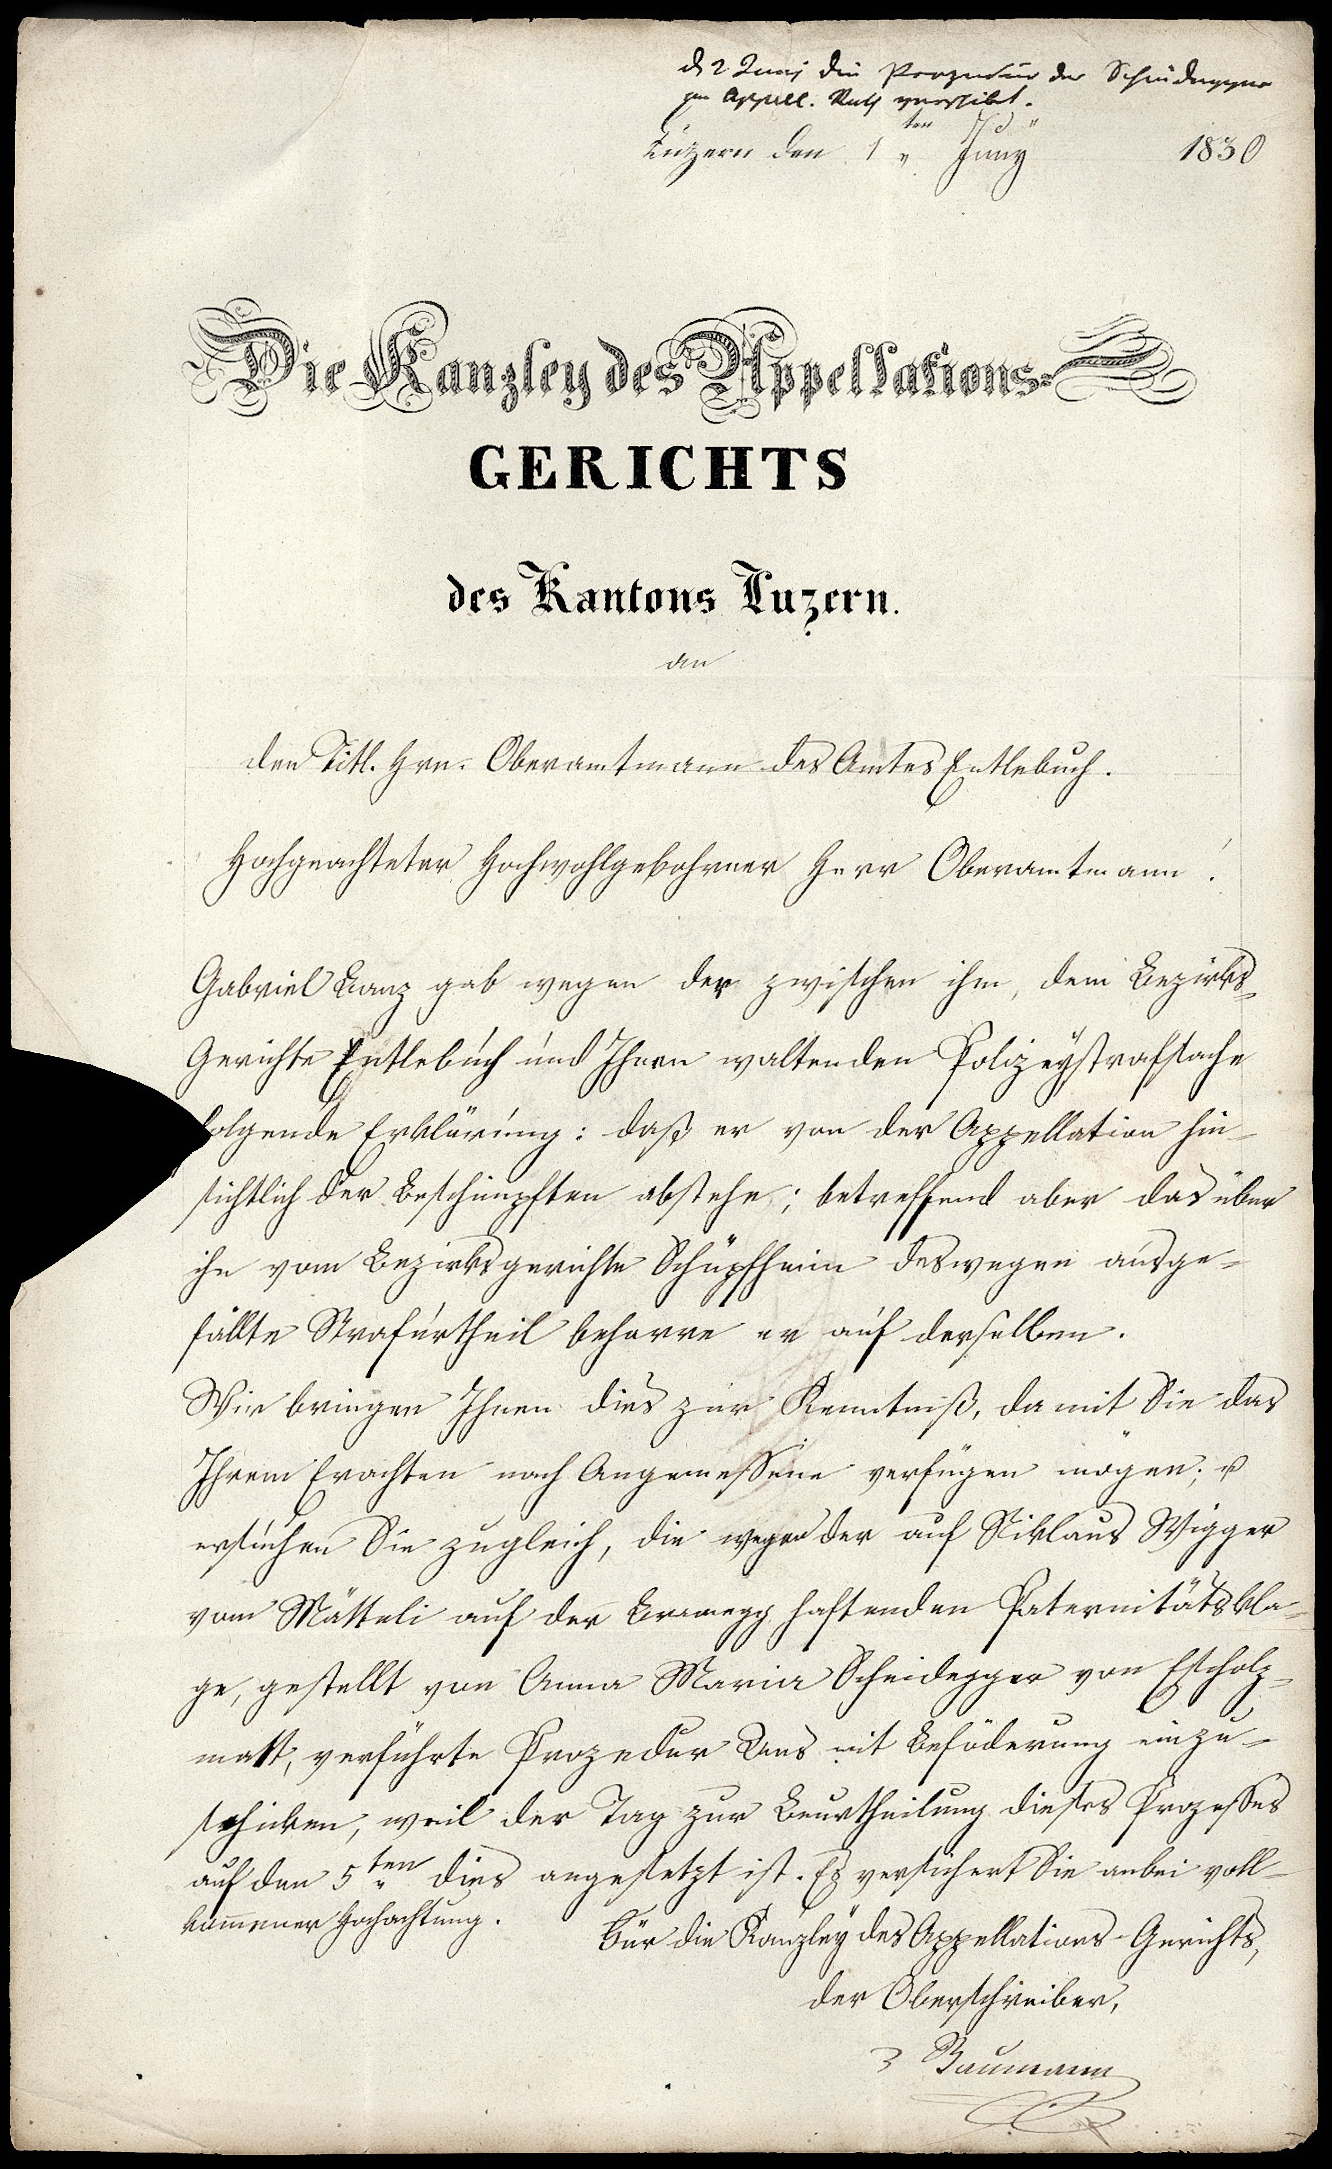 d 2 Juni die Prozedur der Scheidegger
zu Appell. Rath verschikt.
Luzern den 1ten Juny 1830
Die Kanzley des Appellations-
GERICHTS
des Kantons Luzern.
an
den Titl. Hrn. Oberamtmann des Amtes Entlebuch.
Hochgeachteter Hochwohlgebohrner Herr Oberamtmann!
Gabriel Lanz gab wegen der zwischen ihm, dem Bezirks-
Gerichte Entlebuch und Ihnen waltenden Polizeystrafsache
folgende Erklärung: daß er von der Appellation hin-
sichtlich der Beschimpften abstehe; betreffend aber das über
ihn vom Bezirksgerichte Schüpfheim deswegen ausge-
fällte Strafurtheil beharre er auf derselben.
Wir bringen Ihnen dies zur Kenntniß, damit Sie das
Ihrem Erachten nach Angemessene verfügen mögen; u
ersuchen Sie zugleich, die wegen der auf Niklaus Wigger
vom Mätteli auf der Bramegg haftenden Paternitätskla-
ge, gestellt von Anna Maria Scheidegger von Escholz-
matt, verführte Prozedur Uns mit Beföderung einzu-
schicken, weil der Tag zur Beurtheilung dieses Prozesses
auf den 5ten dies angesetzt ist. Es versichert Sie anbei voll-
kommener Hochachtung.
Für die Kanzley des Appellations-Gerichts,
der Oberschreiber,
Baumann